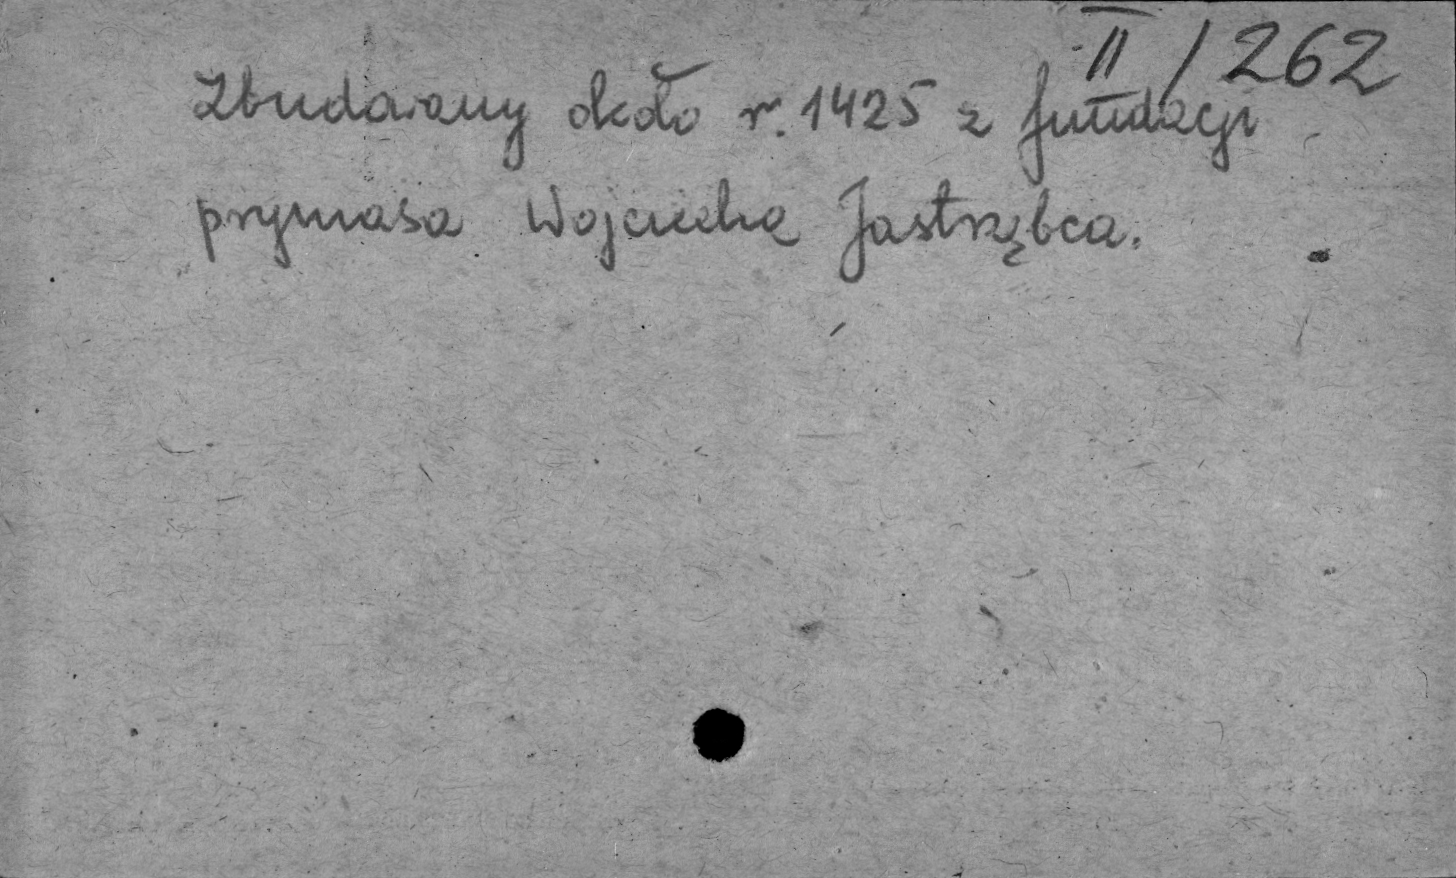 II / 262
Zbudowany około r. 1425 z fundacji
prymasa Wojciecha Jastrzębca.